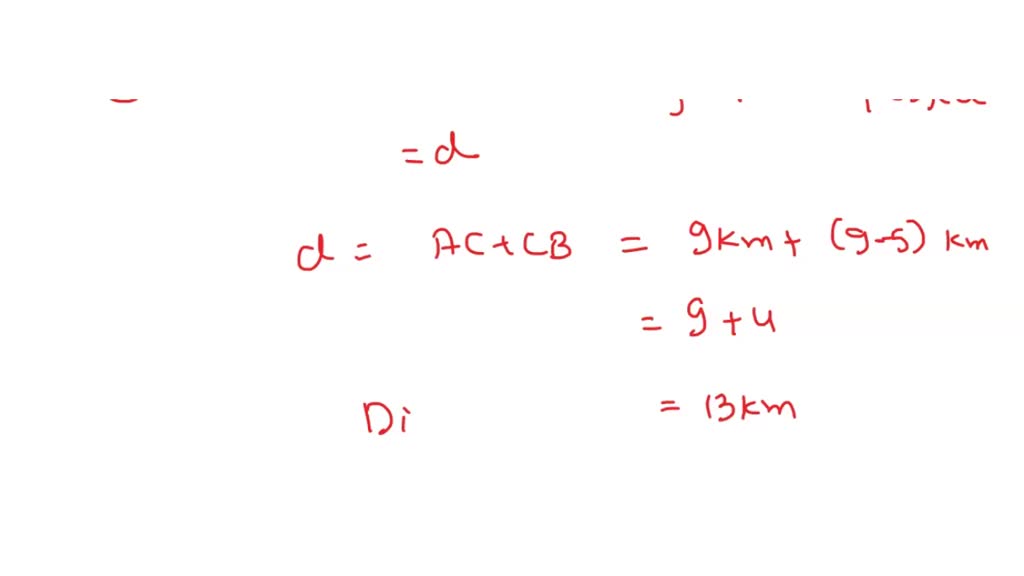 = d
d = AC + CB = 9km + (9-5) km
= 9 + 4
Di = 13km